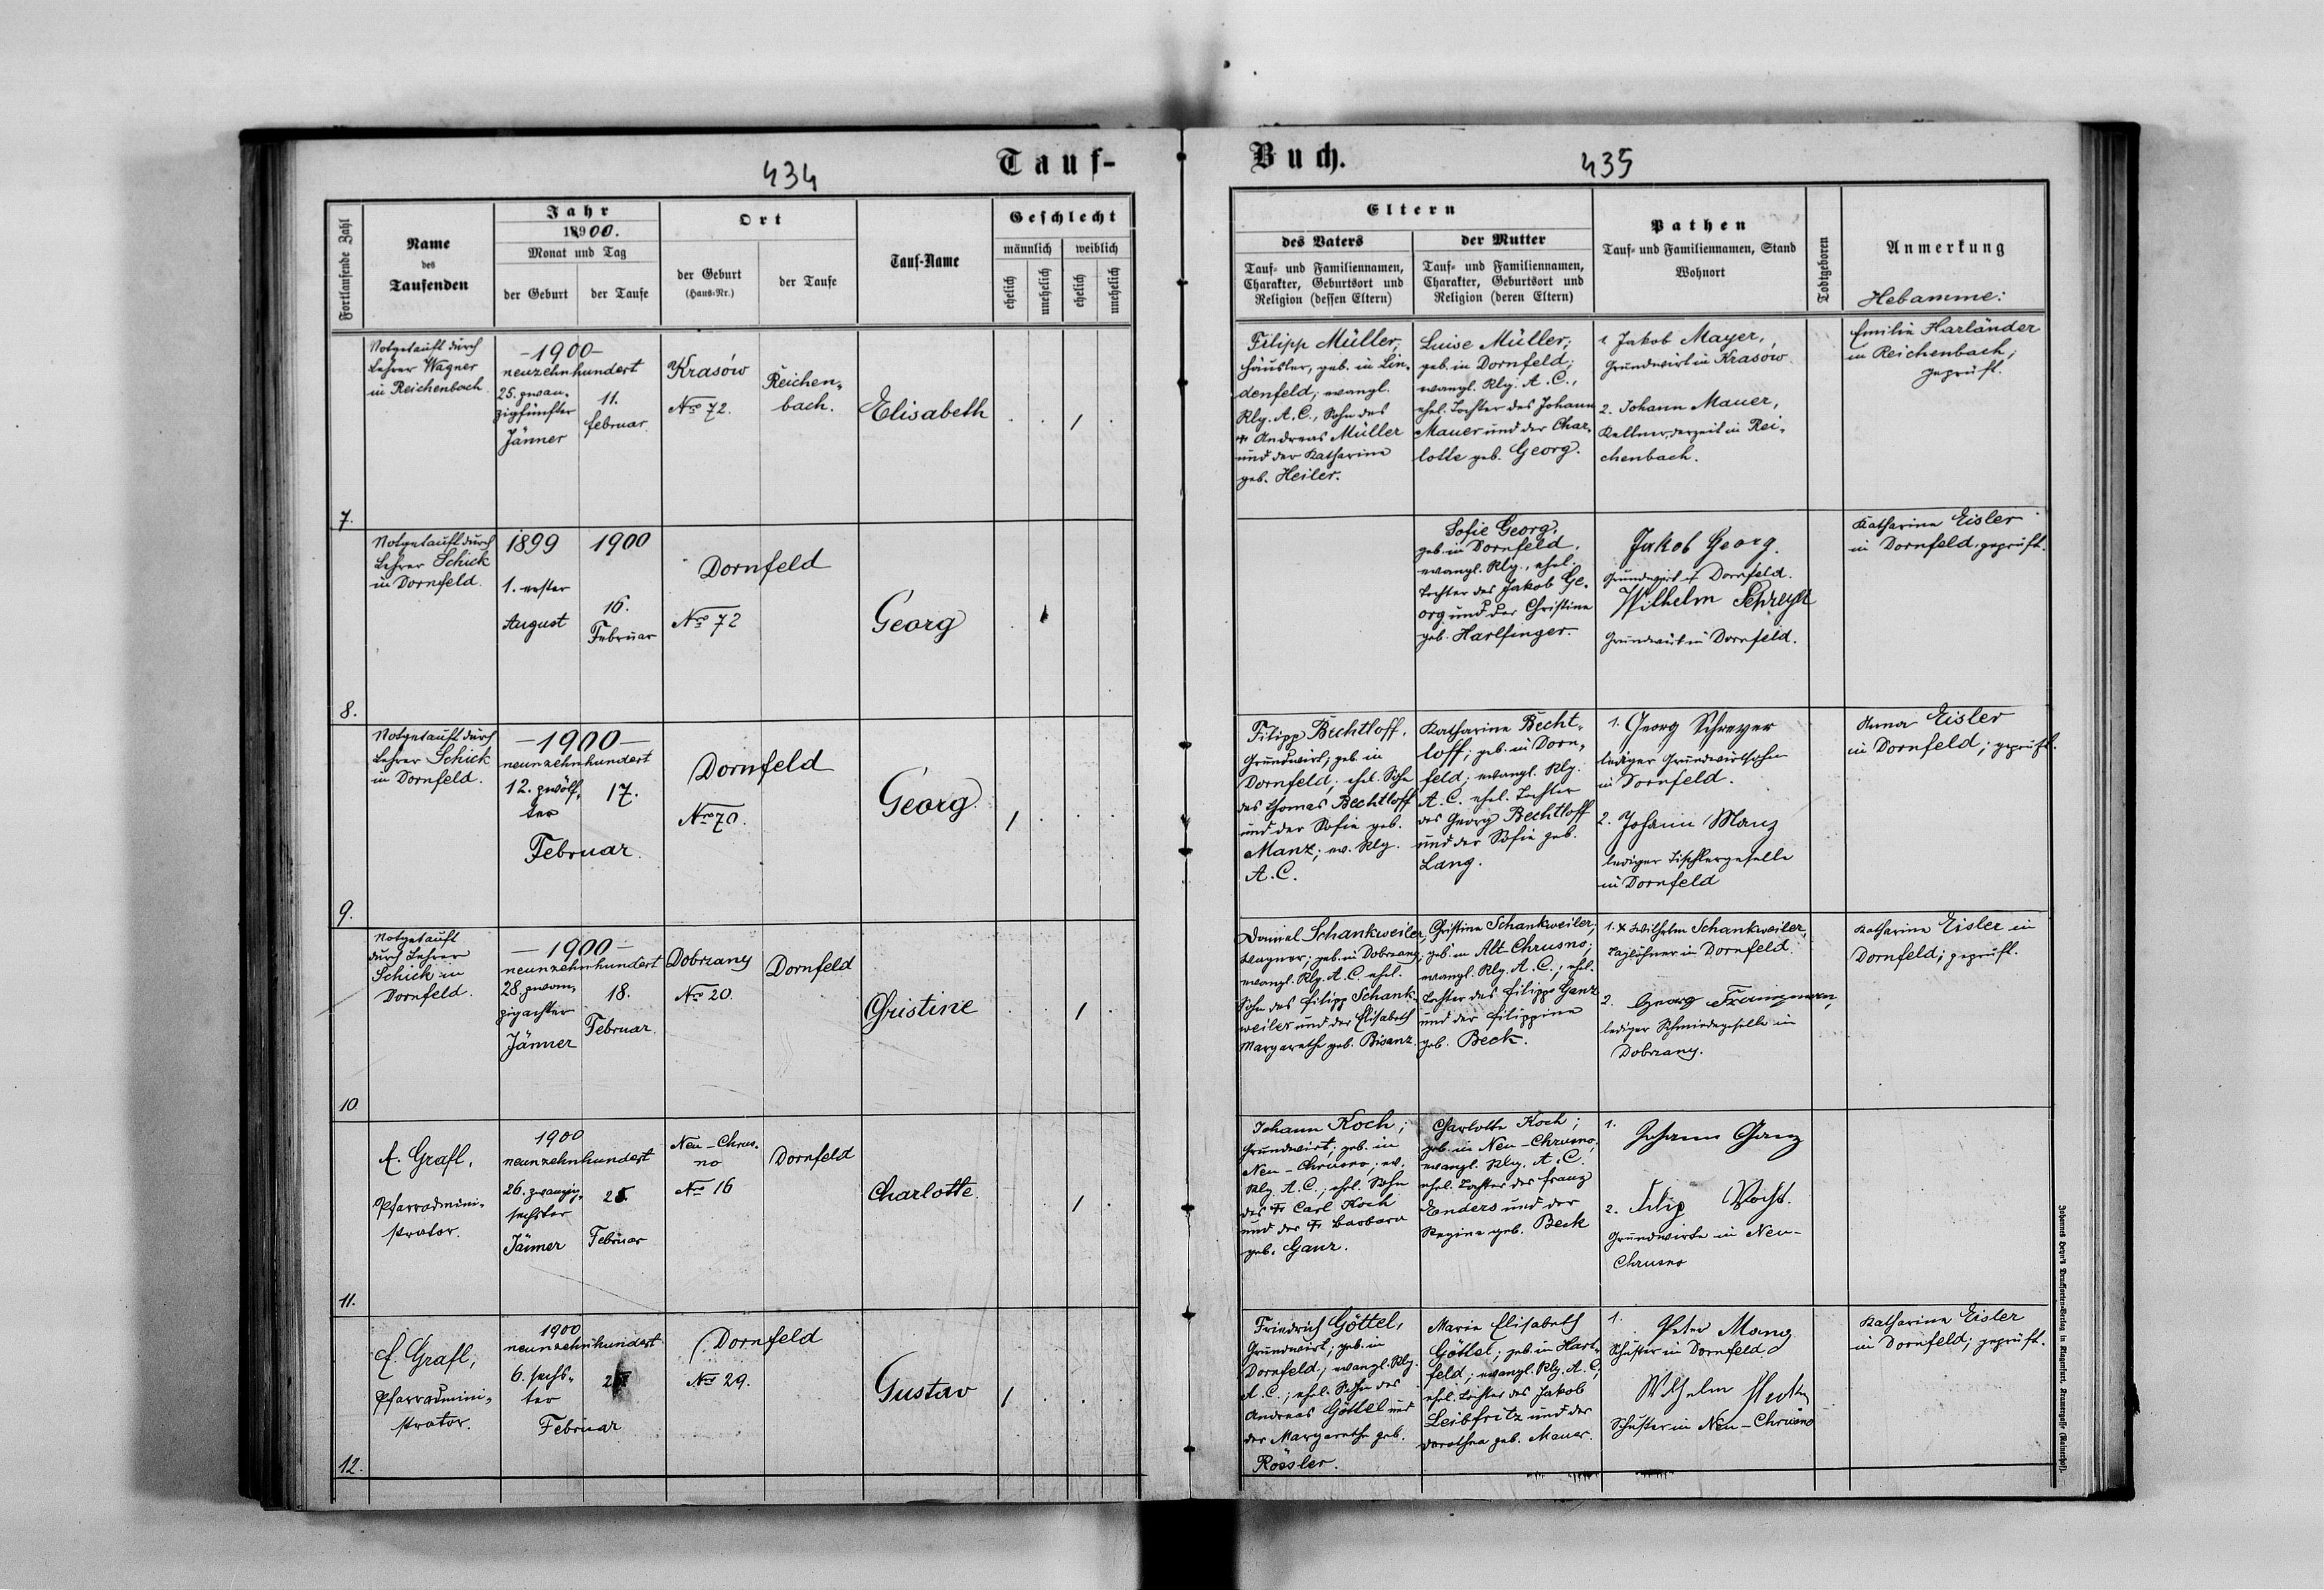 434
Tauf-
Buch.
435
Fortlaufende Zahl
Name
des
Taufenden
Jahr
1900.
Monat und Tag
der Geburt
der Taufe
Ort
der Geburt
(Haus-Nr.)
der Taufe
Tauf-Name
Geschlecht
männlich
weiblich
ehelich
unehelich
ehelich
unehelich
Eltern
des Vaters
Tauf- und Familiennamen,
Charakter, Geburtsort und
Religion (dessen Eltern)
der Mutter
Tauf- und Familiennamen,
Charakter, Geburtsort und
Religion (deren Eltern)
Pathen
Tauf- und Familiennamen, Stand
Wohnort
Todtgeboren
Anmerkung
Hebamme:
7.
Notgetauft durch
Lehrer Wagner
in Reichenbach
-1900-
neunzehnhundert
25. zwan-
zigfünfter
Jänner
11.
februar.
Krasów
Nro 72.
Reichen-
bach.
Elisabeth
1
Filipp Müller,
Häusler, geb. in Lin-
denfeld; evangl.
Rlg. A. C., Sohn des
Andreas Müller
und der Katharina
geb. Heiler.
Luise Müller;
geb. in Dornfeld;
evangl. Rlg. A. C.,
ehel. Tochter des Johann
Mauer und der Char-
lotte geb. Georg.
1 Jakob Mayer,
Grundwirt in Krasow
2. Johann Mauer,
Kellner, derzeit in Rei-
chenbach.
Emilie Harländer
in Reichenbach;
geprüft.
8.
Notgetauft durch
Lehrer Schick
in Dornfeld.
1899
1. erster
August
1900
16.
Februar
Dornfeld
Nro 72
Georg
1
Sofie Georg.
geb. in Dornfeld.
evangl. Rlg., ehel.
Tochter des Jakob Ge-
org und der Christine
geb. Harlfinger.
Jakob Georg.
Grundwirt in Dornfeld.
Wilhelm
Grundwirt in Dornfeld.
Katharina Eisler
in Dornfeld, geprüft.
9.
Notgetauft durch
Lehrer Schick
in Dornfeld.
-1900-
neunzehnhundert
12. zwölf-
ter
Februar.
17.
Dornfeld
Nro 70.
Georg.
1
Filipp Bechtloff,
Grundwirt, geb. in
Dornfeld, ehel. Sohn
des Thomas Bechtloff
und der Sofie geb.
Manz; ev. Rlg.
A. C.
Katharina Becht-
loff; geb. in Dorn-
feld; evangl. Rlg.
A. C. ehel. Tochter
des Georg Bechtloff
und der Sofie geb.
Lang.
1. Georg Schreyer
lediger Grundwirtssohn
in Dornfeld.
2. Johann Manz
lediger Tischlergeselle
in Dornfeld
Anna Eisler
in Dornfeld; geprüft.
10
Notgetauft
durch Lehrer
Schick in
Dornfeld.
-1900-
neunzehnhundert
28. zwan-
zigachter
Jänner
18.
Februar.
Dobrzany
Nro 20.
Dornfeld
Christine
1
Daniel Schankweiler,
Wagner; geb. in Dobrzany;
evangl. Rlg. A. C. ehel.
Sohn des Filipp Schank-
weiler und der Elisabeth
Margarethe geb. Bisanz.
Christine Schankweiler,
geb. in Alt-Chrusno;
evangl. Rlg. A. C.; ehel.
Tochter des Filipp Ganz
und der Filippine
geb. Beck.
1. Wilhelm Schankweiler,
Taglöhner in Dornfeld.
2. Georg
lediger Schmiedegeselle in
Dobrzany.
Katharina Eisler in
Dornfeld; geprüft.
11.
Grafl,
Pfarradmini-
strator.
1900
neunzehnhundert
26. zwanzig-
sechster
Jänner
25
Februar
Neu-Chrus-
no
Nro 16
Dornfeld
Charlotte
1
Johann Koch;
Grundwirt; geb. in
Neu-Chrusno; ev.
Rlg. A. C.; ehel. Sohn
des Carl Koch
und der Barbara
geb. Ganz.
Charlotte Koch;
geb. in Neu-Chrusno;
evangl. Rlg. A. C.
ehel. Tochter des Franz
Enders und der
Regina geb. Beck
1.
Johann Ganz
2. Filip
Grundwirte in Neu-
Chrusno
12.
Grafl,
Pfarradmini-
strator.
1900
neunzehnhundert
6. sechs-
ter
Februar
Dornfeld
Nro 29.
Gustav
1
Friedrich Göttel,
Grundwirt; geb. in
Dornfeld; evangl. Rlg.
A. C.; ehel. Sohn des
Andreas Göttel und
der Margarethe geb.
Rössler.
Marie Elisabeth
Göttel; geb. in Hart-
feld; evangl. Rlg. A. C.;
ehel. Tochter des Jakob
Leibfritz und der
Dorothea geb. Mauer.
1.
Peter Manz
Schuster in Dornfeld
Wilhelm
Schuster in Neu-Chrusno
Katharina Eisler
in Dornfeld; geprüft.